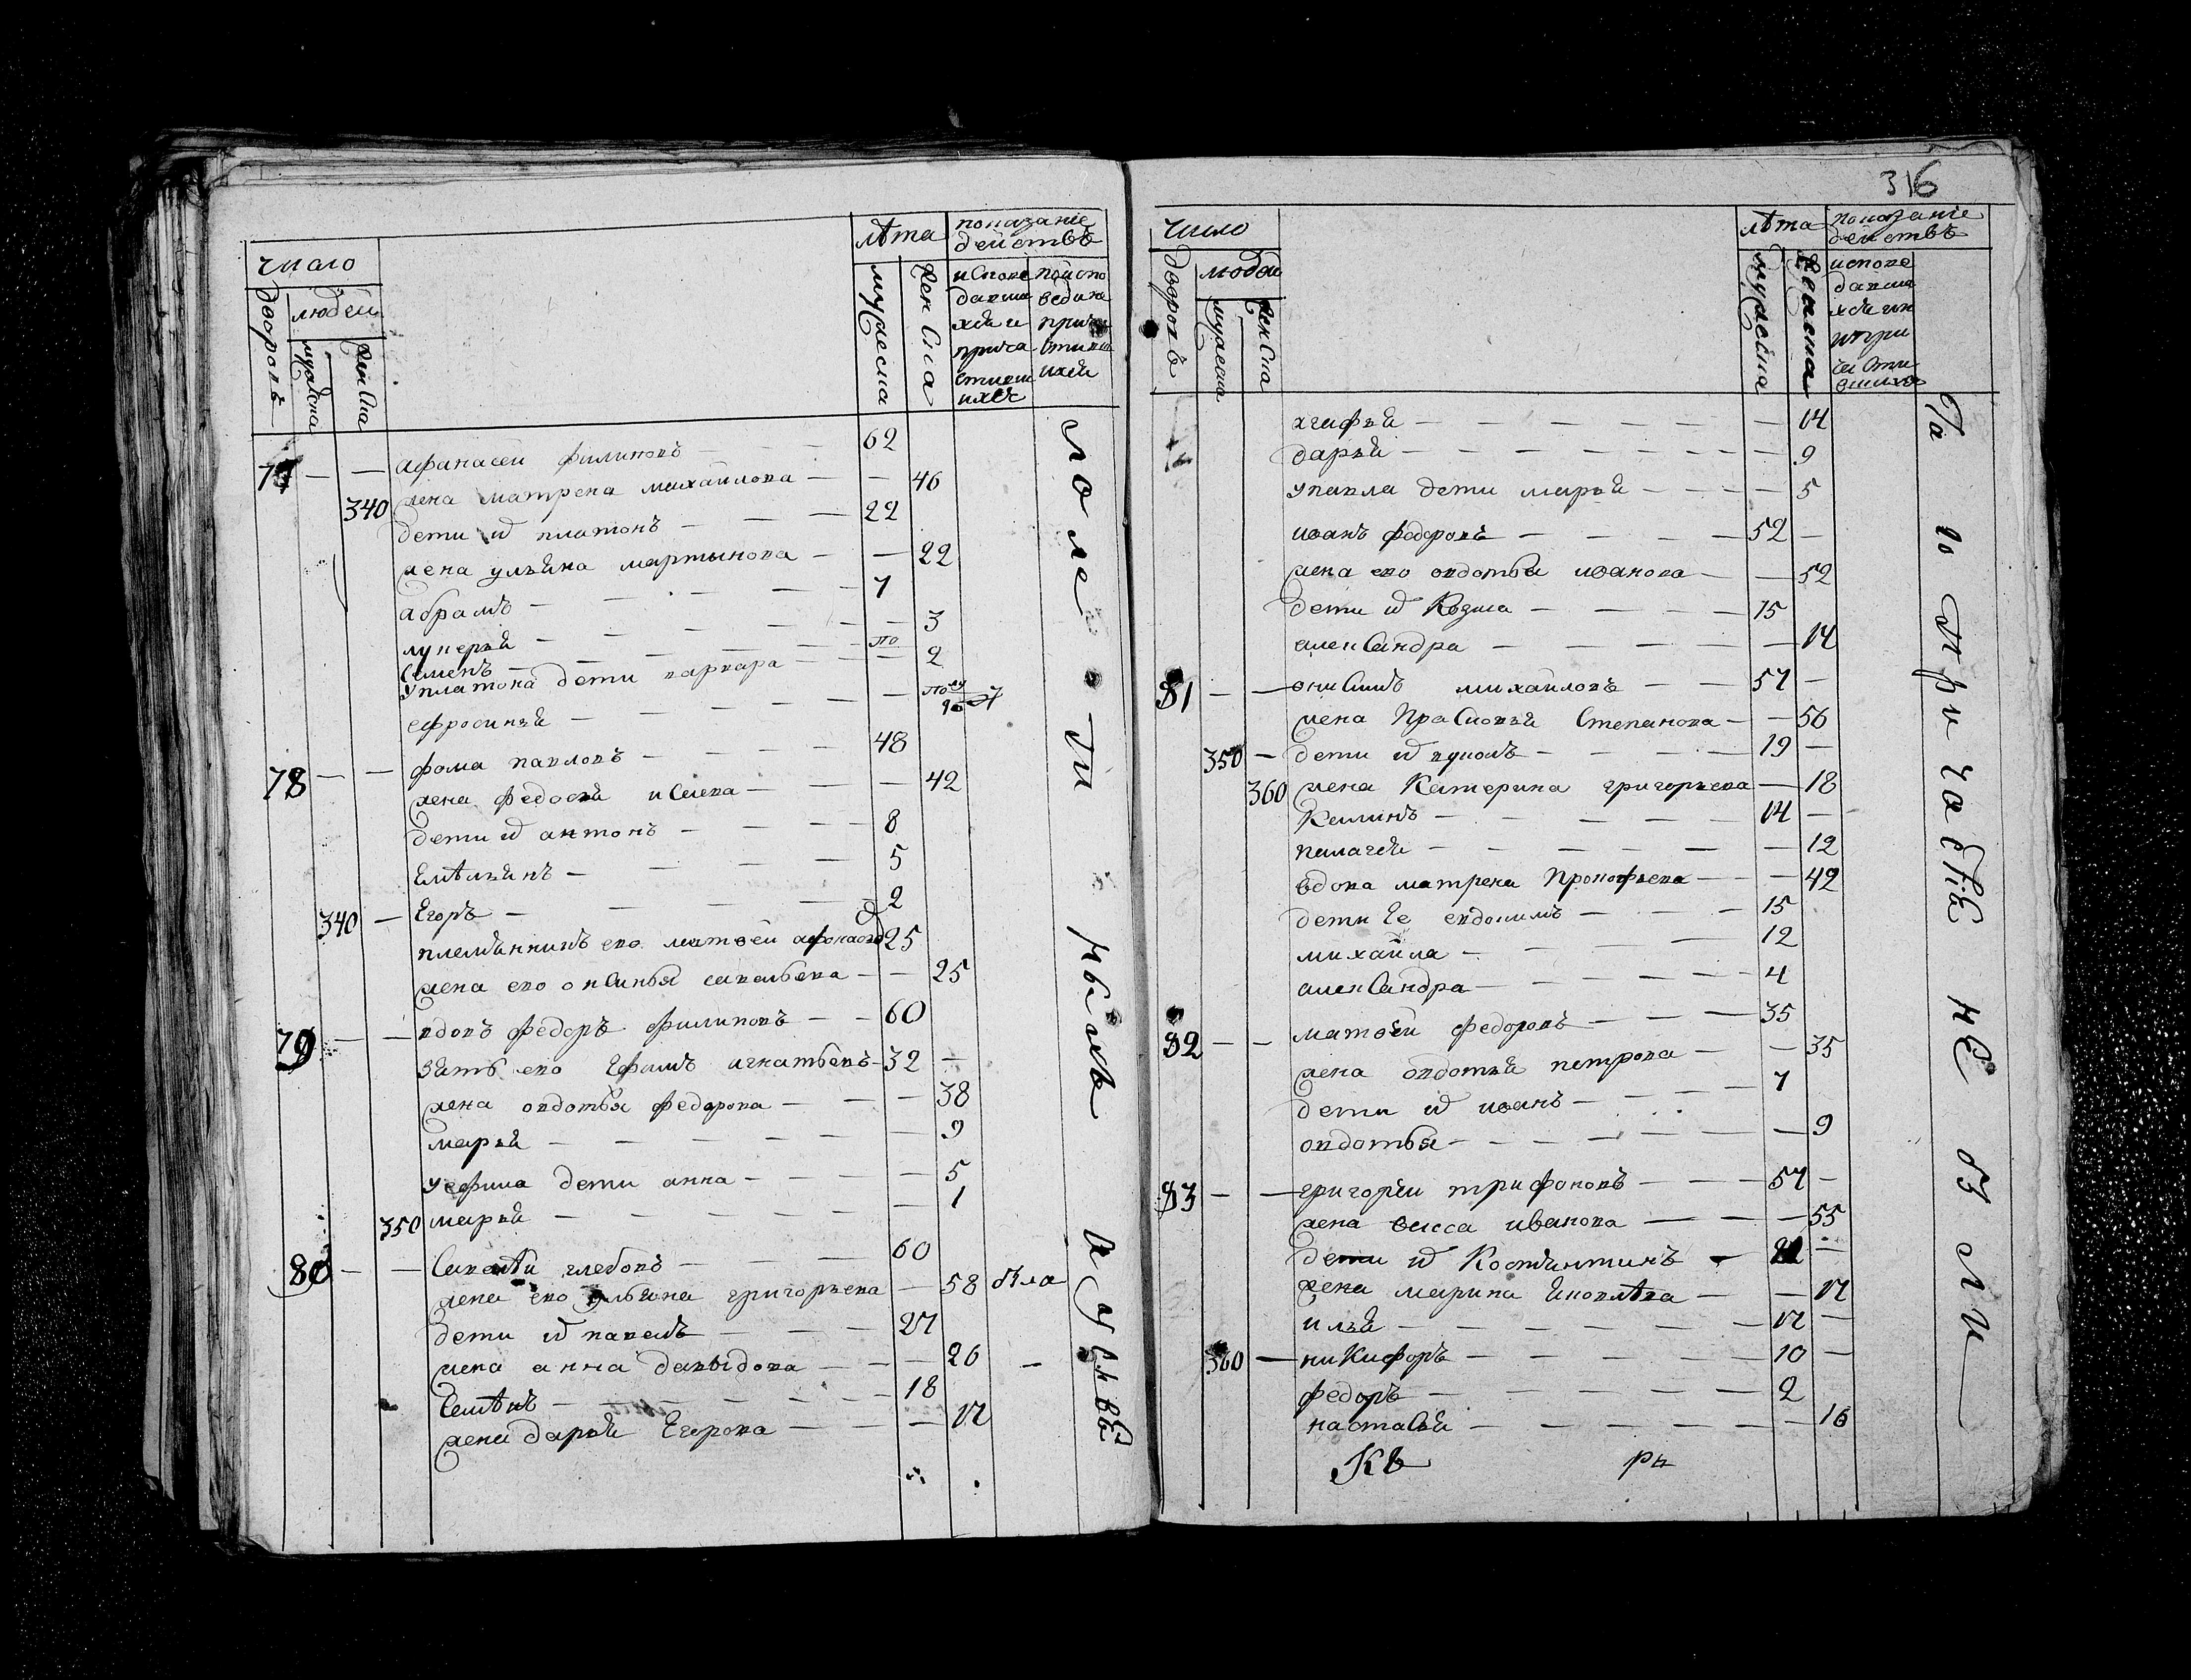 число
дворовъ
людей
мужеска
женска
лѣта
мужеска
женска
показаніе действъ
исповедавшихся и причастившихся
по исповеди не причастившихся
77 — — афанасеи филиповъ — — 62
340 жена матрена михаилова — — 46
дети и платонъ — — — 22
жена ульяна мартынова — — 22
абрамъ — — — — 7
лукерья — — — — — 3
Семенъ — — — — — по
У платона дети варвара — — — 2
ефросинья — — — — — полу
78 — — фома павловъ — — — — 48
жена федосья — — — 42
дети и антонъ — — — — 8
Емѣльянъ — — — — 5
340 — Егоръ — — — — 2
племянникъ ево матвеи афонасов 25
жена ево оксинья савельева — — 25
79 — — вдовъ федоръ филиповъ — — 60
зять ево Ефимъ игнатьевъ — 32 —
жена овдотья федорова — — — 38
марья — — — — — — 9
У ефима дети анна — — — — 5
350 марья — — — — — — 1
80 — — Савелѣи глебовъ — — — 60
жена ево ульяна григорьева — 58 была
дети и павелъ — — — 27
жена анна давыдова — — — 26 —
Семѣнъ — — — — — 18
жена дарья Егорова — — — 17
316
число
дворовъ
людей
мужеска
женска
лѣта
мужеска
женска
показаніе действъ
агафья — — — — — — 14
дарья — — — — — — — 9
У павла дети марья — — — — 5
иванъ федоровъ — — — — 52 —
жена ево овдотья иванова — — 52
дети и Козма — — — — 15
александра — — — — — 14
81 — — онисимъ михаиловъ — — 57 —
жена Прасковья Степанова — — 56
350 — дети и — — — — 19 —
360 жена Катерина григорьева — 18
— — — — — 14 —
пелагея — — — — — — 12
вдова матрена Прокофьева — — — 42
дети Ее евдокимъ — — — 15
михаила — — 12
александра — — — — — 4
82 — — матвѣи федоровъ — — — 35
жена овдотья петрова — — 35
дети и иванъ — — — — 7
овдотья — — — — — — — 9
83 — — григореи трифоновъ — — — 57 —
жена иванова — — — — 55
дети и Костянтинъ — —
жена марина — — 17
илья — — — — — — 17 —
360 — никифоръ — — — — — 10 —
федоръ — — — — — 2
настасья — — — — — — 16